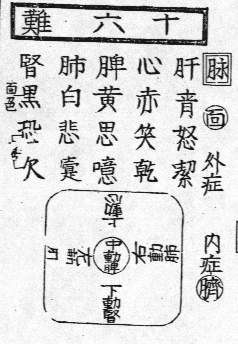 十六難
脉 面 外症 内症 臍
肝青怒潔
心赤笑乾
脾黄思噫
肺白悲
腎黒恐欠
面色
中動脾
右動肺
下動腎